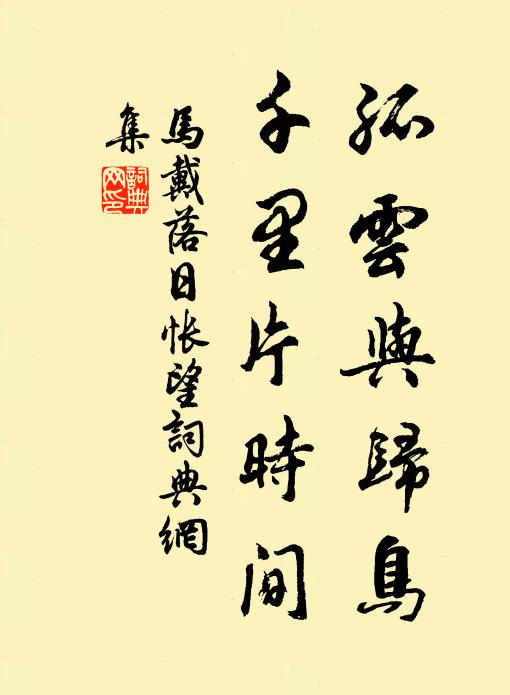 孤雲與歸鳥
千里片時間
馬戴落日悵望詞典網
集
詞典
网印